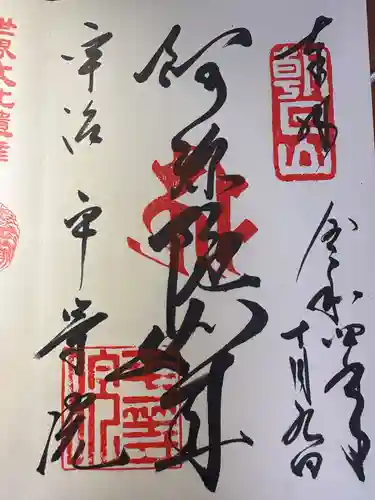 奉拝
令和四年
十月九日
阿弥陀如来
宇治 平等院
世界文化遺産
朝日山
平等院印